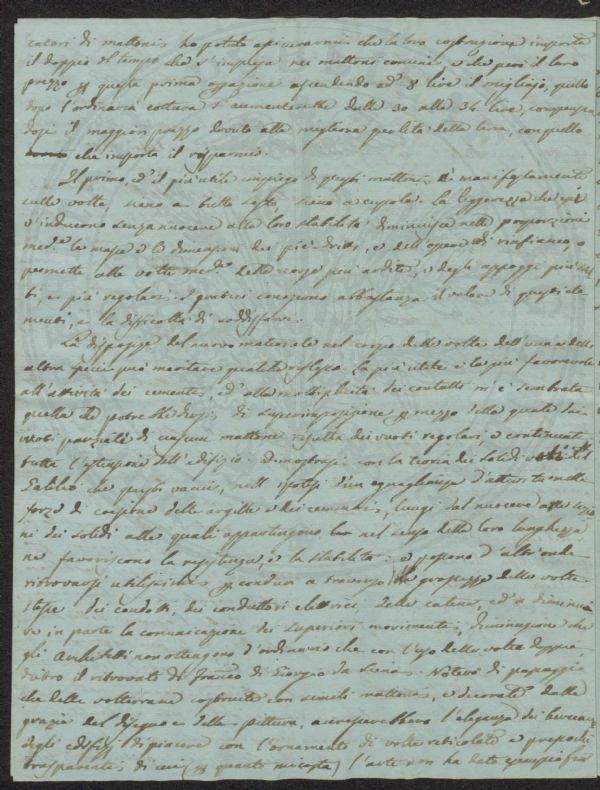 catori di mattoni ho potuto assicurarmi che la loro costruzione importa
il doppio del tempo che s'impiega nei mattoni comuni, e che però il loro
prezzo questa prima operazione ascendendo ad 8 lire il migliajo, quello
dopo l'ordinaria cottura s'aumenterebbe dalle 30 alle 34 lire, compensan
dosi il maggior prezzo dovuto alla migliore qualità della terra, con quello
che importa il risparmio.
Il primo, ed il più utile impiego di questi mattoni è manifestamente
sulle volte, sieno a botte sieno a cupola. La leggerezza che essi
v'inducono senza nuocere alla loro stabilità diminuisce nelle proporzioni
med.e le masse e le dimensioni dei piè-dritti, e dell'opera di rinfianco, e
permette alle volte med.e delle corse più ardite, e degli appoggi più
ti, e più regolari. I pratici conoscono abbastanza il valore di questi ele
menti, e la difficoltà di soddisfarvi.
La disposizione del nuovo materiale nel corpo delle volte dell'una e dell'
altra specie può meritare qualche riflesso. La più utile e la più favorevole
all'attività dei cementi, ed alla moltiplicità dei contatti mi è sembrata
quella di superimposizione mezzo della quale dai
vuoti parziali di ciascun mattone risulta dei vuoti regolari, e continuati
tutta l'estensione dell'edifizio. Dimostrasi con la teoria dei solidi vuoti del
Galileo che questi vacui, nell'ipotesi d'un eguaglianza d'attività nelle
forze di coesione delle argille e dei cementi, lungi dal nuocere alle
ni dei solidi alle quali appartengono nel senso della loro lunghezza
ne favoriscono la resistenza, e la stabilità, e possono d'altronde
ritrovarsi utilissimi condur a traverso la grossezza delle volte
stesse dei condotti, dei conduttori elettrici, delle catene, ed a diminui
re in parte la comunicazione dei superiori movimenti, diminuzione che
gli Architetti non ottengono d'ordinario che con l'uso delle volte doppie,
dietro il ritrovato di Franco di Giorgio da Siena. Noterò di passaggio
che delle volterrane costruite con simili mattoni, e decorate dalle
grazie del disegno e della pittura, accrescerebbero l'eleganza dei
degli edifizj di piacere con l'ornamento di volte reticolate e pressoché
trasparenti di cui ( quanto mi costa) l'arte non ha dato esempio fin